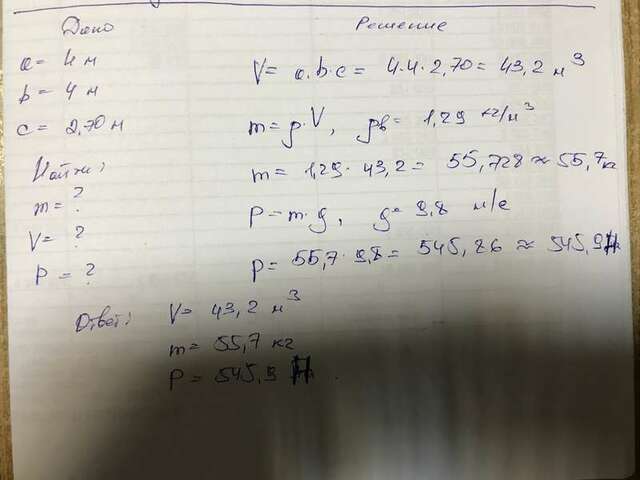 Дано
a = 4 м
b = 4 м
c = 2,70 м
Найти:
m = ?
V = ?
P = ?
Решение
V = a·b·c = 4·4·2,70 = 43,2 м³
m = ρ·V, ρв = 1,29 кг/м³
m = 1,29·43,2 = 55,728 ≈ 55,7 кг
P = m·g, g = 9,8 м/с
P = 55,7·9,8 = 545,86 ≈ 545,9 Н
Ответ: V = 43,2 м³
m = 55,7 кг
P = 545,9 Н.